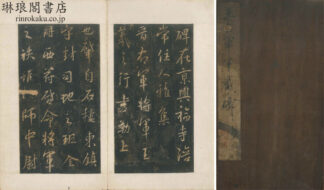 琳琅閣書店
rinrokaku.co.jp
碑在京興福寺陪
常住大雅集
晉右軍將軍王
羲之行書勒上
也肇自石樓東鎮
封司地之班金
西符啓命將軍
之秩師中尉